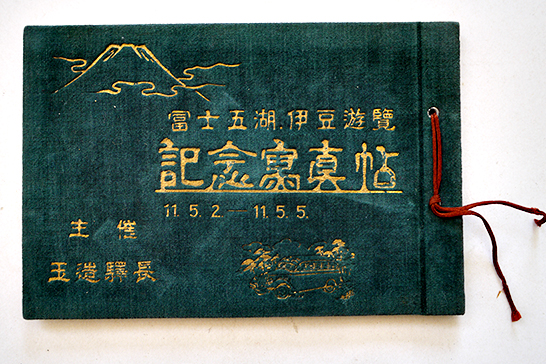 富士五湖.伊豆遊覽
記念寫真帖
11. 5. 2.—11. 5. 5.
主催
玉造驛長